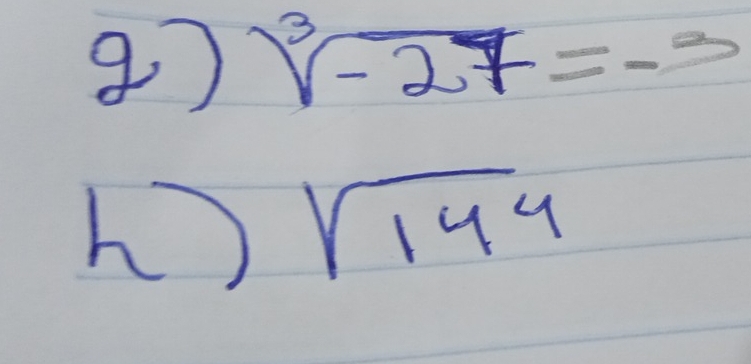 g) ∛-27 = -3
h) √144